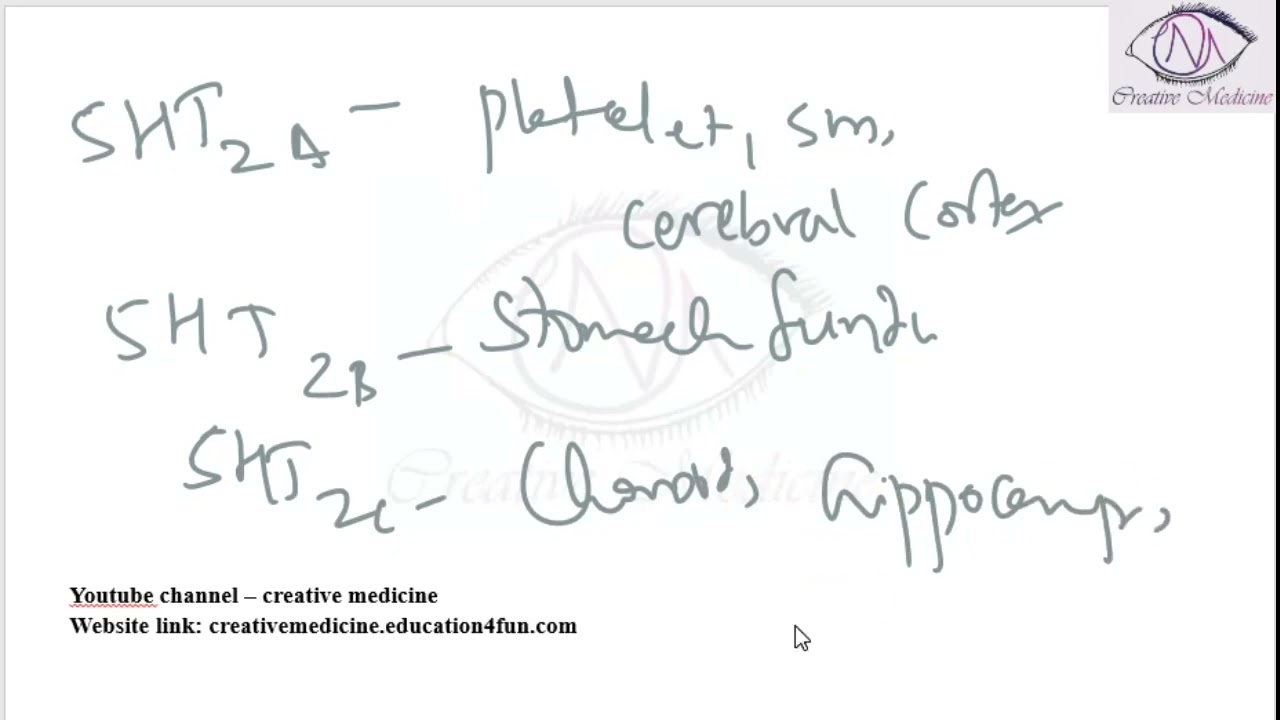 Creative Medicine
5HT2A - platelet, sm,
cerebral cortex
5HT2B - stomach fundu
5HT2C - Choroid, hippocamp,
Creative Medicine
Youtube channel – creative medicine
Website link: creativemedicine.education4fun.com